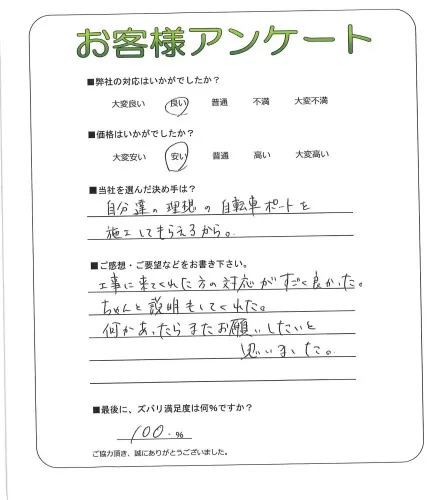 お客様アンケート
■弊社の対応はいかがでしたか?
大変良い 良い 普通 不満 大変不満
■価格はいかがでしたか?
大変安い 安い 普通 高い 大変高い
■当社を選んだ決め手は?
自分達の理想の自転車ポートを
施工してもらえるから。
■ご感想・ご要望などをお書き下さい。
工事に来てくれた方の対応がすごく良かった。
ちゃんと説明もしてくれた。
何かあったらまたお願いしたいと
思いました。
■最後に、ズバリ満足度は何%ですか?
100.%
ご協力頂き、誠にありがとうございました。